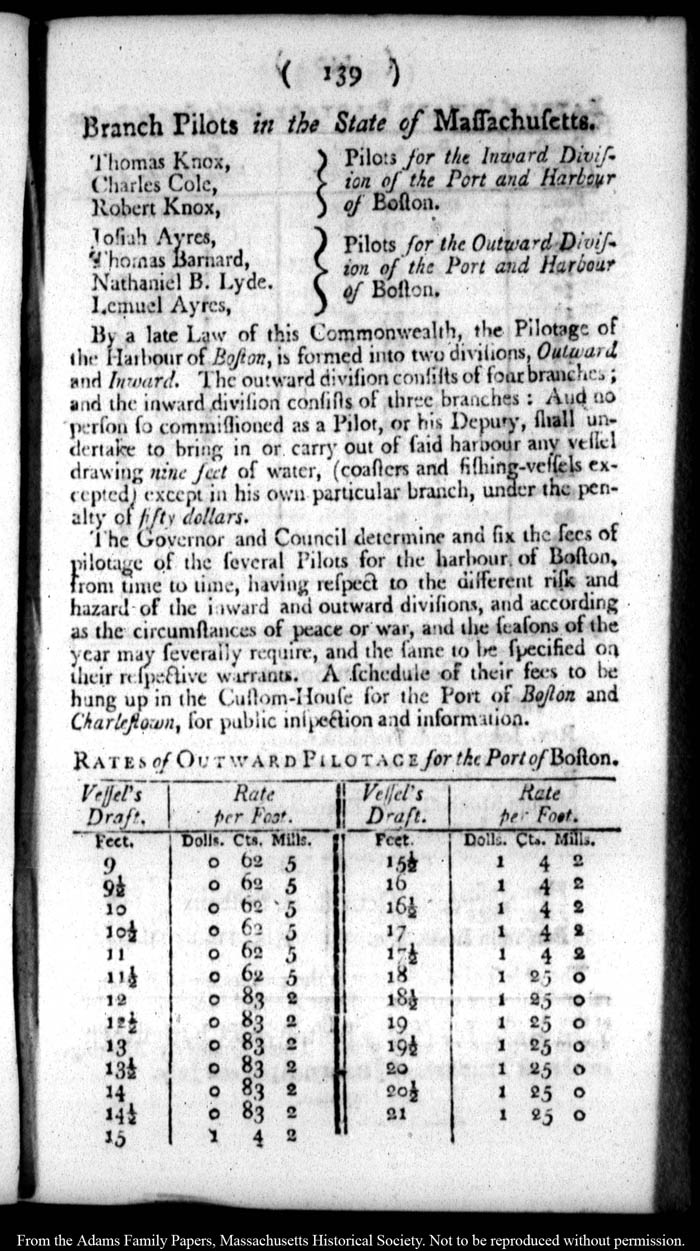 ( 139 )
Branch Pilots in the State of Maſſachuſetts.
Thomas Knox,
Charles Cole,
Robert Knox,
} Pilots for the Inward Diviſ-
ion of the Port and Harbour
of Boſton.
Joſiah Ayres,
Thomas Barnard,
Nathaniel B. Lyde.
Lemuel Ayres,
} Pilots for the Outward Diviſ-
ion of the Port and Harbour
of Boſton.
By a late Law of this Commonwealth, the Pilotage of
the Harbour of Boſton, is formed into two diviſions, Outward
and Inward. The outward diviſion conſiſts of four branches;
and the inward diviſion conſiſts of three branches: And no
perſon ſo commiſſioned as a Pilot, or his Deputy, ſhall un-
dertake to bring in or carry out of ſaid harbour any veſſel
drawing nine feet of water, (coaſters and fiſhing-veſſels ex-
cepted) except in his own particular branch, under the pen-
alty of fifty dollars.
The Governor and Council determine and fix the fees of
pilotage of the ſeveral Pilots for the harbour of Boſton,
from time to time, having reſpect to the different riſk and
hazard of the inward and outward diviſions, and according
as the circumſtances of peace or war, and the ſeaſons of the
year may ſeverally require, and the ſame to be ſpecified on
their reſpective warrants. A ſchedule of their fees to be
hung up in the Cuſtom-Houſe for the Port of Boſton and
Charleſtown, for public inſpection and information.
RATES of OUTWARD PILOTAGE for the Port of Boſton.
Veſſel's Rate Veſſel's Rate
Draft. per Foot. Draft. per Foot.
Feet. Dolls. Cts. Mills. Feet. Dolls. Cts. Mills.
9 0 62 5 15½ 1 4 2
9½ 0 62 5 16 1 4 2
10 0 62 5 16½ 1 4 2
10½ 0 62 5 17 1 4 2
11 0 62 5 17½ 1 4 2
11½ 0 62 5 18 1 25 0
12 0 83 2 18½ 1 25 0
12½ 0 83 2 19 1 25 0
13 0 83 2 19½ 1 25 0
13½ 0 83 2 20 1 25 0
14 0 83 2 20½ 1 25 0
14½ 0 83 2 21 1 25 0
15 1 4 2
From the Adams Family Papers, Massachusetts Historical Society. Not to be reproduced without permission.